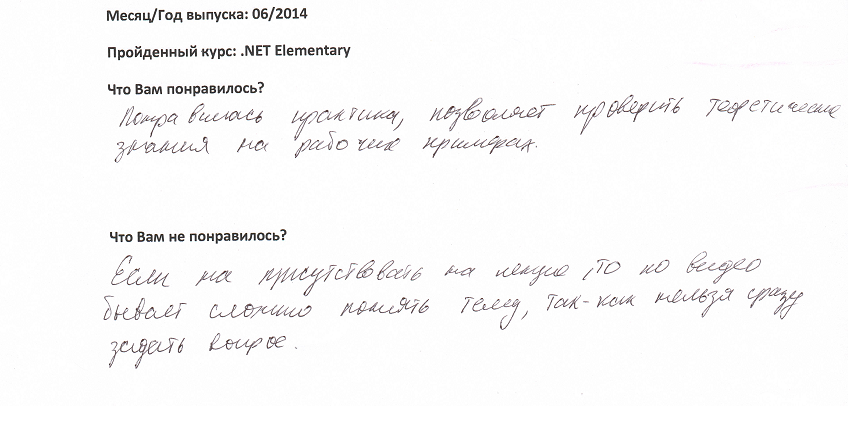 Месяц/Год выпуска: 06/2014
Пройденный курс: .NET Elementary
Что Вам понравилось?
Понравилась практика, позволяет проверить теоретические
знания на рабочих примерах.
Что Вам не понравилось?
Если на присутствовать на лекцие, то по видео
бывает сложно понять тему, так-как нельзя сразу
задать вопрос.